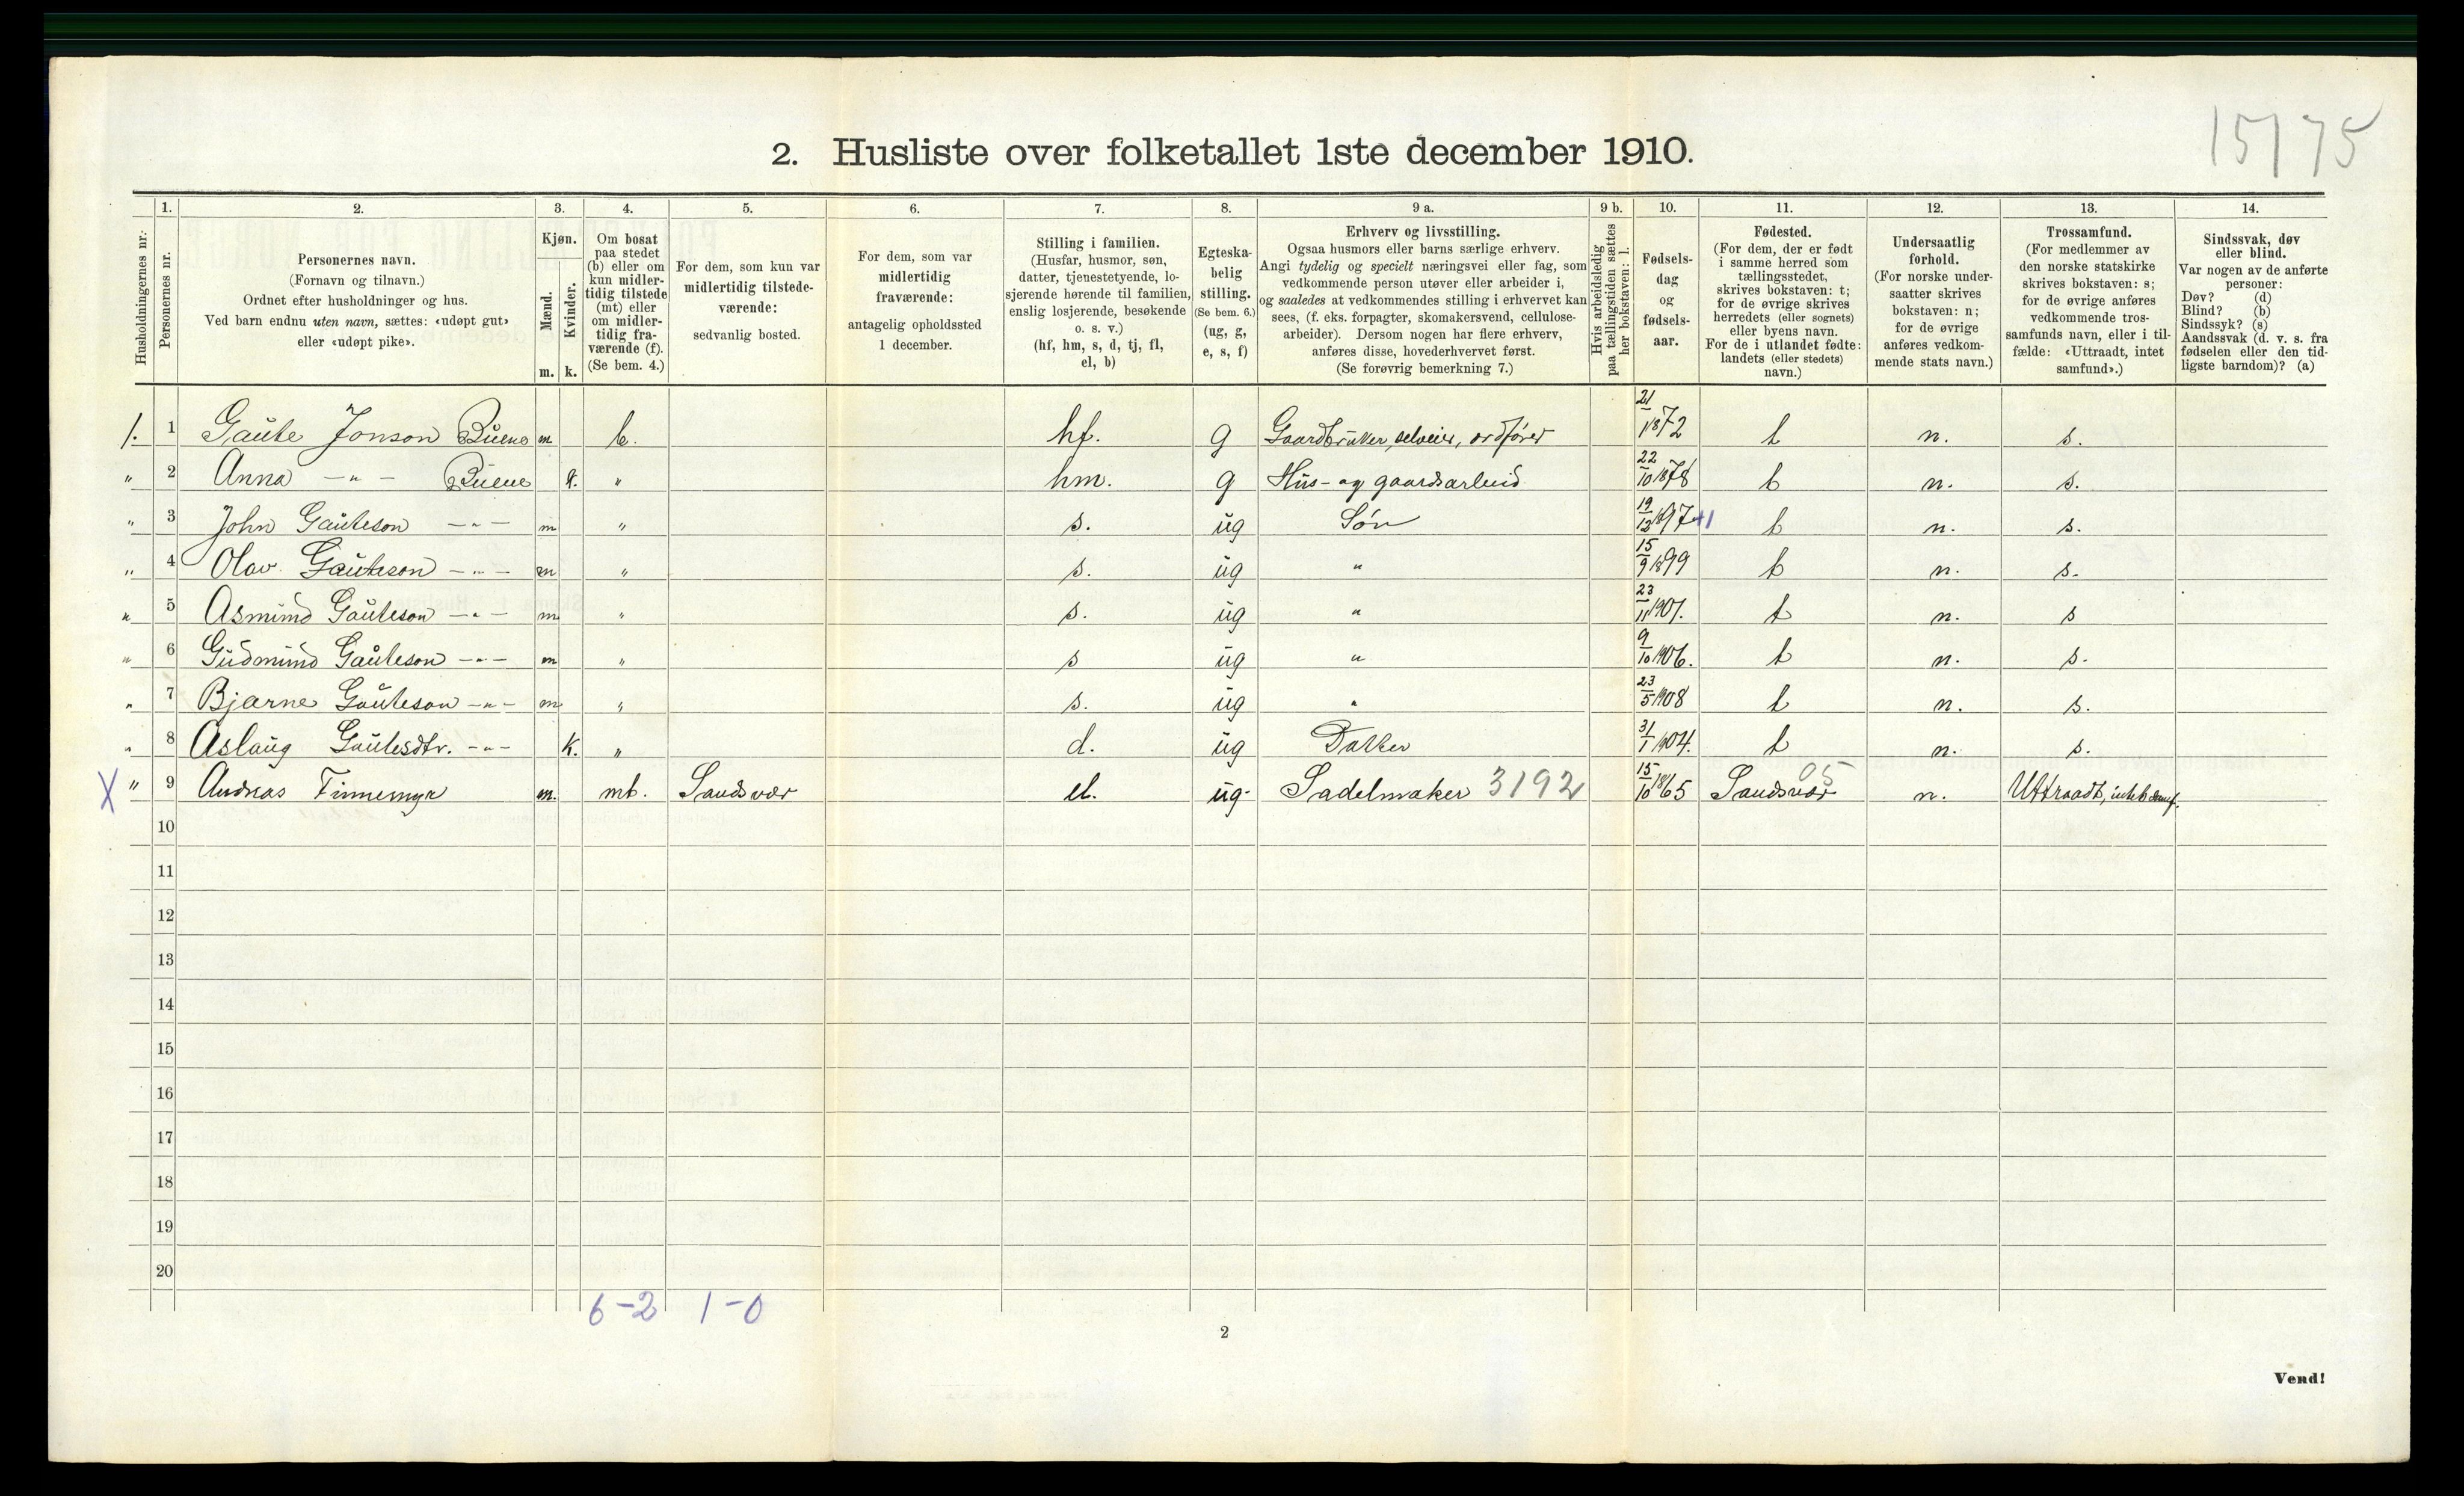 15175
2. Husliste over folketallet 1ste december 1910.
Husholdningernes nr.
1. Personernes nr.
2. Personernes navn.
(Fornavn og tilnavn.)
Ordnet efter husholdninger og hus.
Ved barn endnu uten navn, sættes: «udøpt gut»
eller «udøpt pike».
3. Kjøn.
Mænd. m.
Kvinder. k.
4. Om bosat
paa stedet
(b) eller om
kun midler-
tidig tilstede
(mt) eller
om midler-
tidig fra-
værende (f).
(Se bem. 4.)
5. For dem, som kun var
midlertidig tilstede-
værende:
sedvanlig bosted.
6. For dem, som var
midlertidig
fraværende:
antagelig opholdssted
1 december.
7. Stilling i familien.
(Husfar, husmor, søn,
datter, tjenestetyende, lo-
sjerende hørende til familien,
enslig losjerende, besøkende
o. s. v.)
(hf, hm, s, d, tj, fl,
el, b)
8. Egteska-
belig
stilling.
(Se bem. 6.)
(ug, g,
e, s, f)
9 a. Erhverv og livsstilling.
Ogsaa husmors eller barns særlige erhverv.
Angi tydelig og specielt næringsvei eller fag, som
vedkommende person utøver eller arbeider i,
og saaledes at vedkommendes stilling i erhvervet kan
sees, (f. eks. forpagter, skomakersvend, cellulose-
arbeider). Dersom nogen har flere erhverv,
anføres disse, hovederhvervet først.
(Se forøvrig bemerkning 7.)
9 b. Hvis arbeidsledig
paa tællingstiden sættes
her bokstaven: l.
10. Fødsels-
dag
og
fødsels-
aar.
11. Fødested.
(For dem, der er født
i samme herred som
tællingsstedet,
skrives bokstaven: t;
for de øvrige skrives
herredets (eller sognets)
eller byens navn.
For de i utlandet fødte:
landets (eller stedets)
navn.)
12. Undersaatlig
forhold.
(For norske under-
saatter skrives
bokstaven: n;
for de øvrige
anføres vedkom-
mende stats navn.)
13. Trossamfund.
(For medlemmer av
den norske statskirke
skrives bokstaven: s;
for de øvrige anføres
vedkommende tros-
samfunds navn, eller i til-
fælde: «Uttraadt, intet
samfund».)
14. Sindssvak, døv
eller blind.
Var nogen av de anførte
personer:
Døv? (d)
Blind? (b)
Sindssyk? (s)
Aandssvak (d. v. s. fra
fødselen eller den tid-
ligste barndom)? (a)
1. 1 Gaute Jonson Buene m b. hf. g Gaardbruker, selveier, ordfører 21/1 1872 t n. s.
" 2 Anna -"- Buene k. " hm. g Hus- og gaardsarbeid 22/10 1878 t n. s.
" 3 John Gauteson -"- m " s. ug Søn 19/12 1897 +1 t n. s.
" 4 Olav Gauteson -"- m " s. ug " 15/9 1899 t n. s.
" 5 Asmund Gauteson -"- m " s. ug " 23/11 1901. t n. s
" 6 Gudmund Gauteson -"- m " s ug " 9/10 1906. t n. s.
" 7 Bjarne Gauteson -"- m " s. ug " 23/5 1908 t n. s.
" 8 Aslaug Gautesdtr. -"- k. " d. ug Datter 31/1 1904. t n. s.
X " 9 Andreas Finnemyr m. mt. Sandsvær el. ug Sadelmaker 3192 15/10 1865 Sandsvær 05 n. Uttraadt, intet samf.
10
11
12
13
14
15
16
17
18
19
20
6-2 1-0
2
Vend!